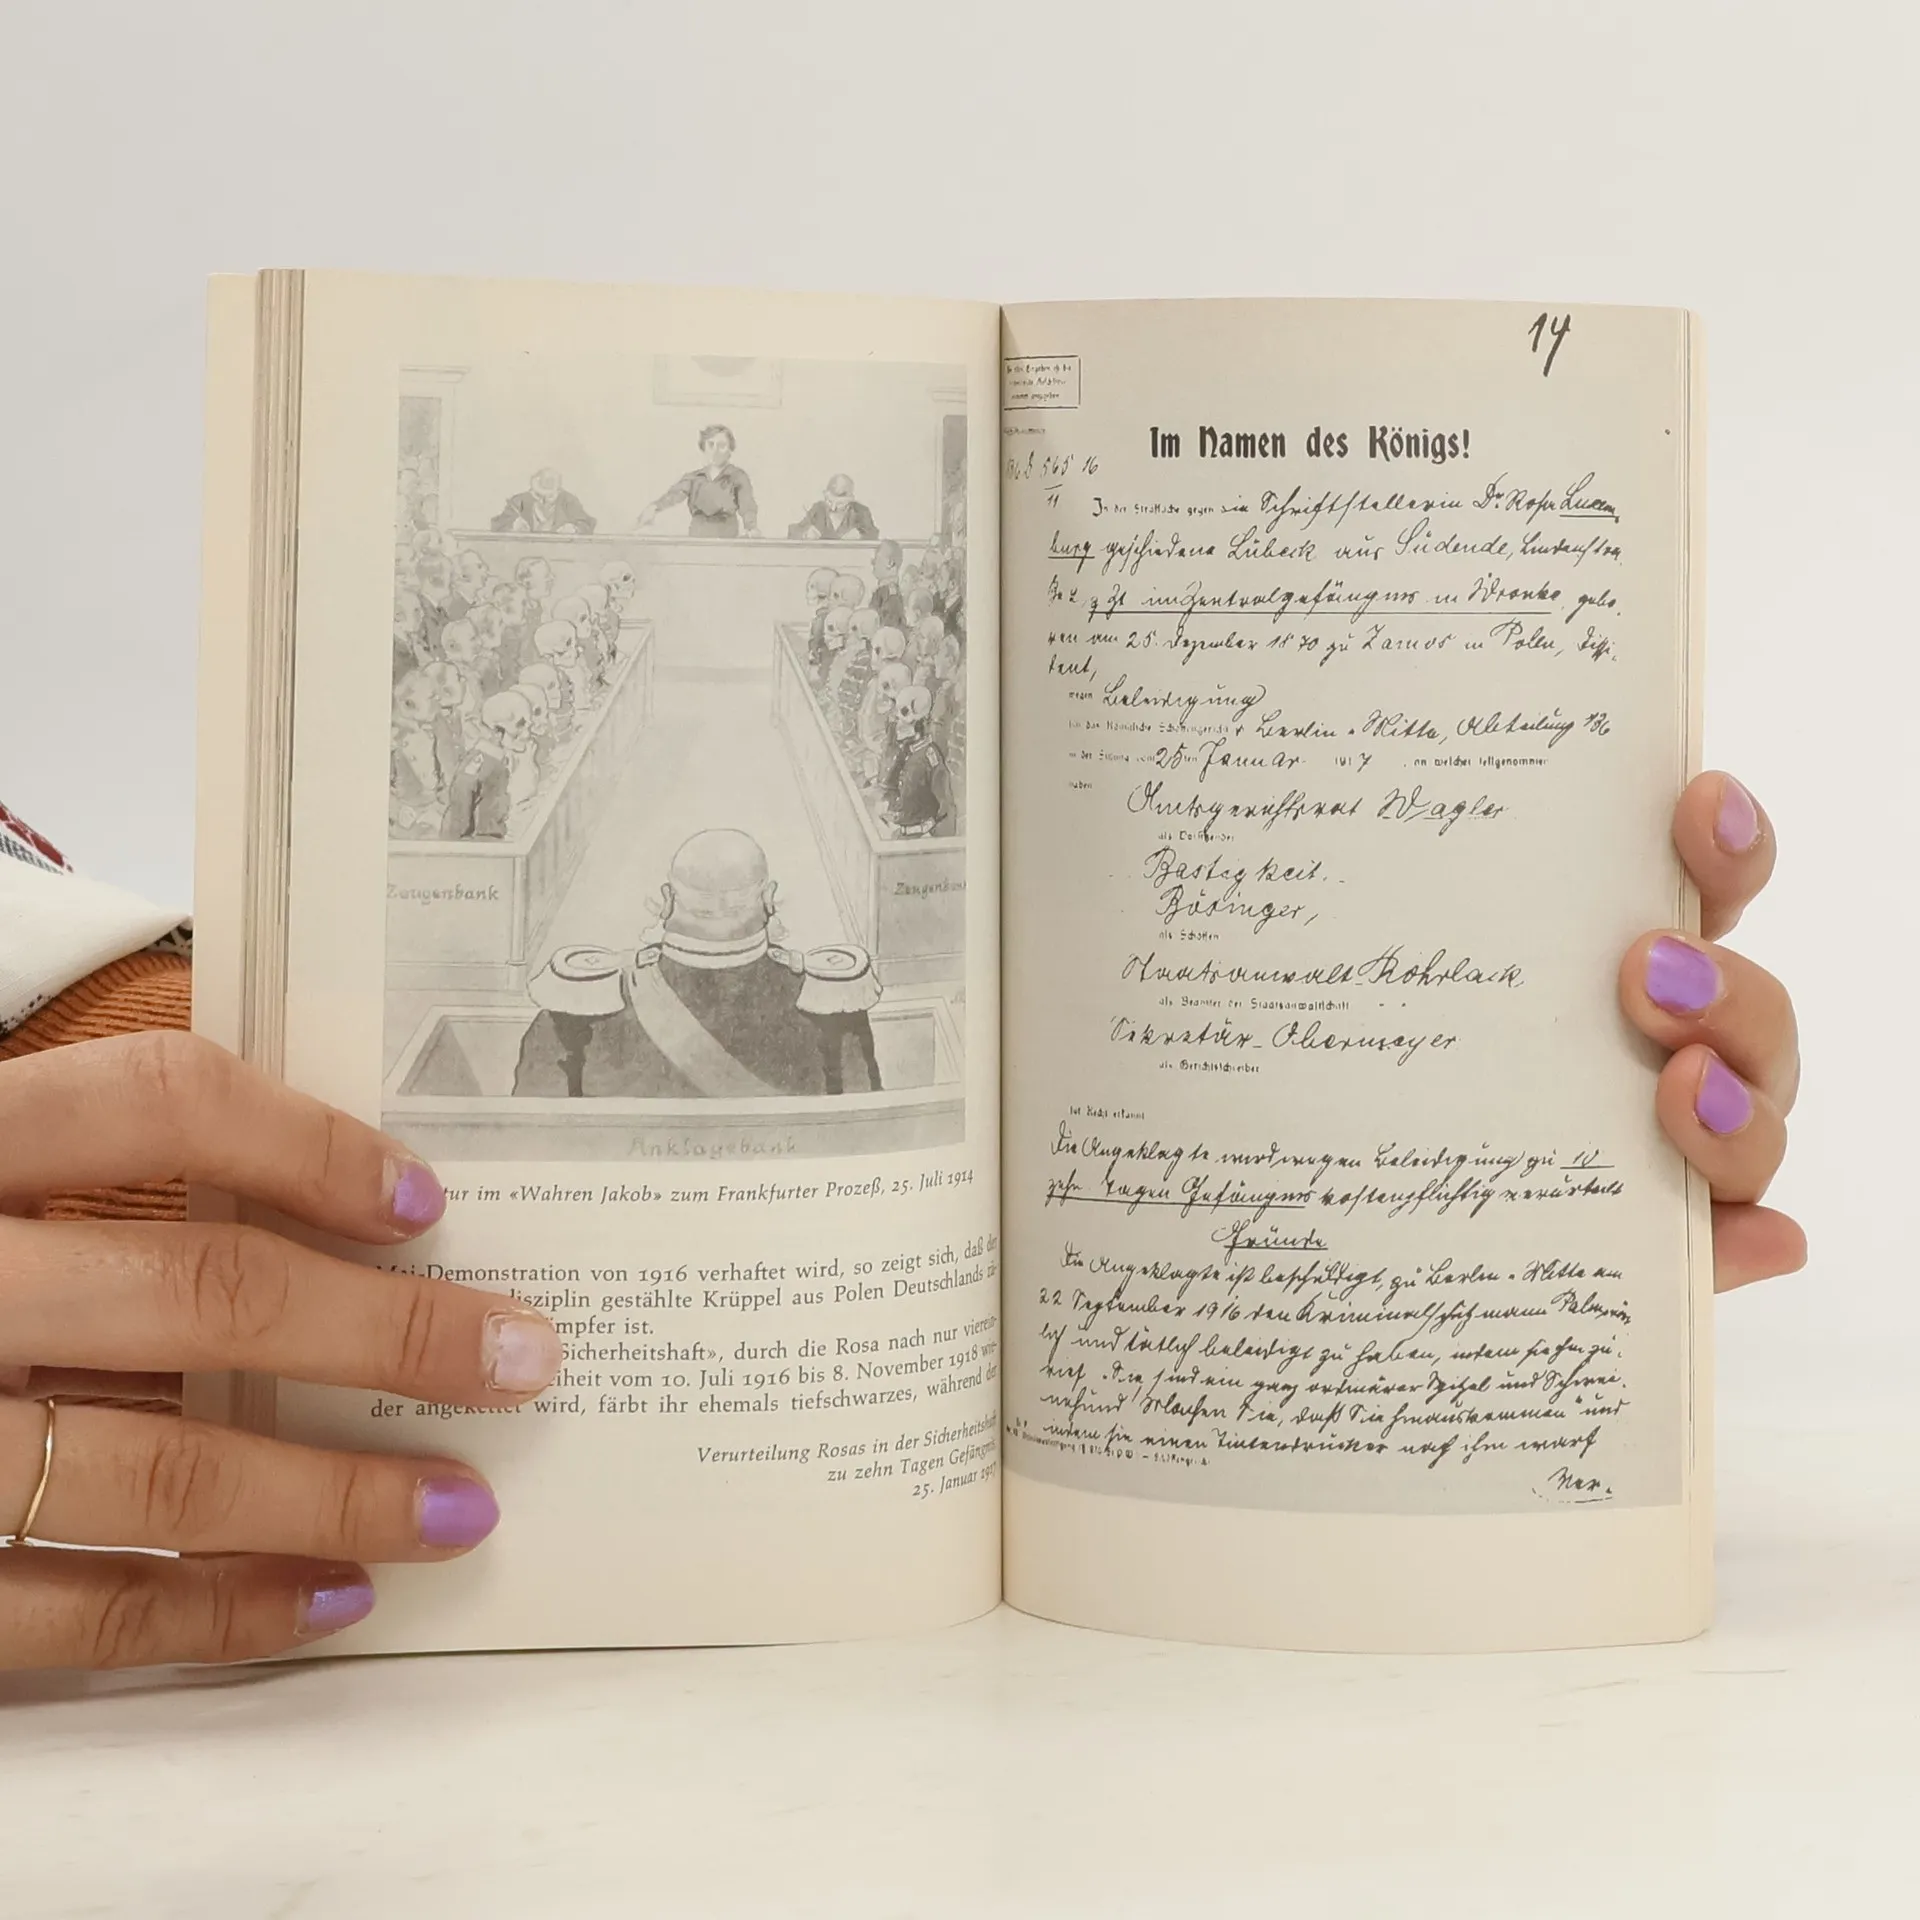 Zeugenbank
Zeugenbank
Anklagebank
tur im «Wahren Jakob» zum Frankfurter Prozeß, 25. Juli 1914
Mai-Demonstration von 1916 verhaftet wird, so zeigt sich, daß der
disziplin gestählte Krüppel aus Polen Deutschlands
mpfer ist.
Sicherheitshaft», durch die Rosa nach nur
eiheit vom 10. Juli 1916 bis 8. November 1918 wie-
der angekettet wird, färbt ihr ehemals tiefschwarzes, während der
Verurteilung Rosas in der Sicherheitshaft
zu zehn Tagen Gefängnis
25. Januar 1917
14
Im Namen des Königs!
565 16
11
In der Strafsache gegen die Schriftstellerin Dr. Rosa Luxem-
burg geschiedene Lübeck aus Südende, Lindenstra
ße 2, z Zt im Zentralgefängnis in Wronke, gebo-
ren am 25. Dezember 1870 zu Zamos in Polen, Dissi-
dent,
wegen Beleidigung
hat das Königliche Schöffengericht Berlin-Mitte, Abteilung 136
in der Sitzung vom 25ten Januar 1917, an welcher teilgenommen
haben
Amtsgerichtsrat Wagler
als Vorsitzender
Bastigkeit.
Bösinger,
als Schöffen
Staatsanwalt Rohrlack
als Beamter der Staatsanwaltschaft
Sekretär Obermeyer
als Gerichtsschreiber
für Recht erkannt
Die Angeklagte wird wegen Beleidigung zu 10
zehn Tagen Gefängnis kostenpflichtig verurteilt
Gründe
Die Angeklagte ist beschuldigt, zu Berlin-Mitte am
22 September 1916 den Kriminalschutzmann
lich und tätlich beleidigt zu haben, indem sie ihm zu-
rief „Sie sind ein ganz ordinärer Spitzel und Schwei-
nehund Machen Sie, daß Sie hinauskommen" und
indem sie einen Tintendrücker nach ihm warf
Ver-